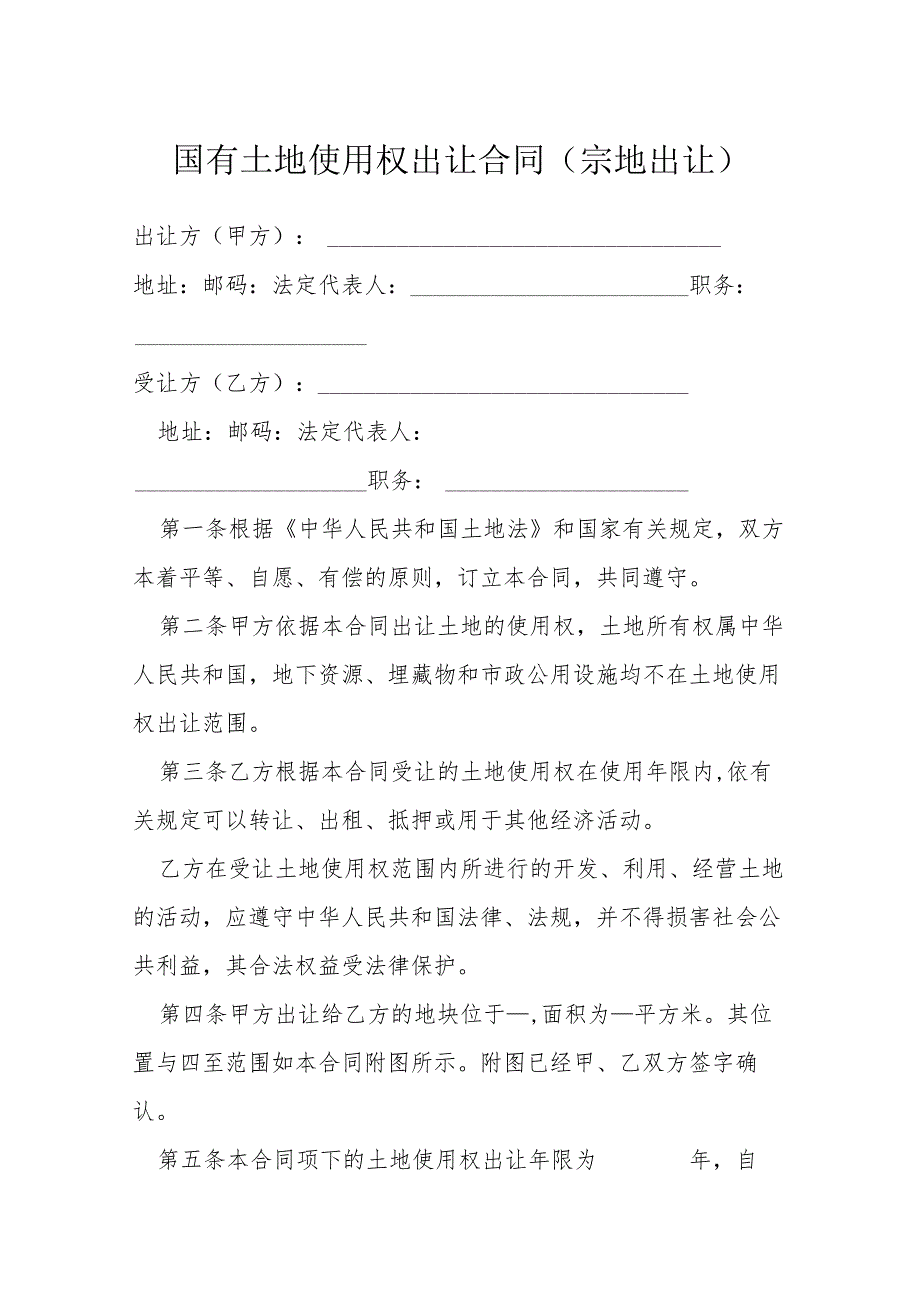 国有土地使用权出让合同（宗地出让）
出让方（甲方）： __________________________________
地址：邮码：法定代表人：________________________职务：
____________________
受让方（乙方）：________________________________
地址：邮码：法定代表人：
____________________职务： _____________________
第一条根据《中华人民共和国土地法》和国家有关规定，双方
本着平等、自愿、有偿的原则，订立本合同，共同遵守。
第二条甲方依据本合同出让土地的使用权，土地所有权属中华
人民共和国，地下资源、埋藏物和市政公用设施均不在土地使用
权出让范围。
第三条乙方根据本合同受让的土地使用权在使用年限内,依有
关规定可以转让、出租、抵押或用于其他经济活动。
乙方在受让土地使用权范围内所进行的开发、利用、经营土地
的活动，应遵守中华人民共和国法律、法规，并不得损害社会公
共利益，其合法权益受法律保护。
第四条甲方出让给乙方的地块位于—,面积为—平方米。其位
置与四至范围如本合同附图所示。附图已经甲、乙双方签字确
认。
第五条本合同项下的土地使用权出让年限为 年，自